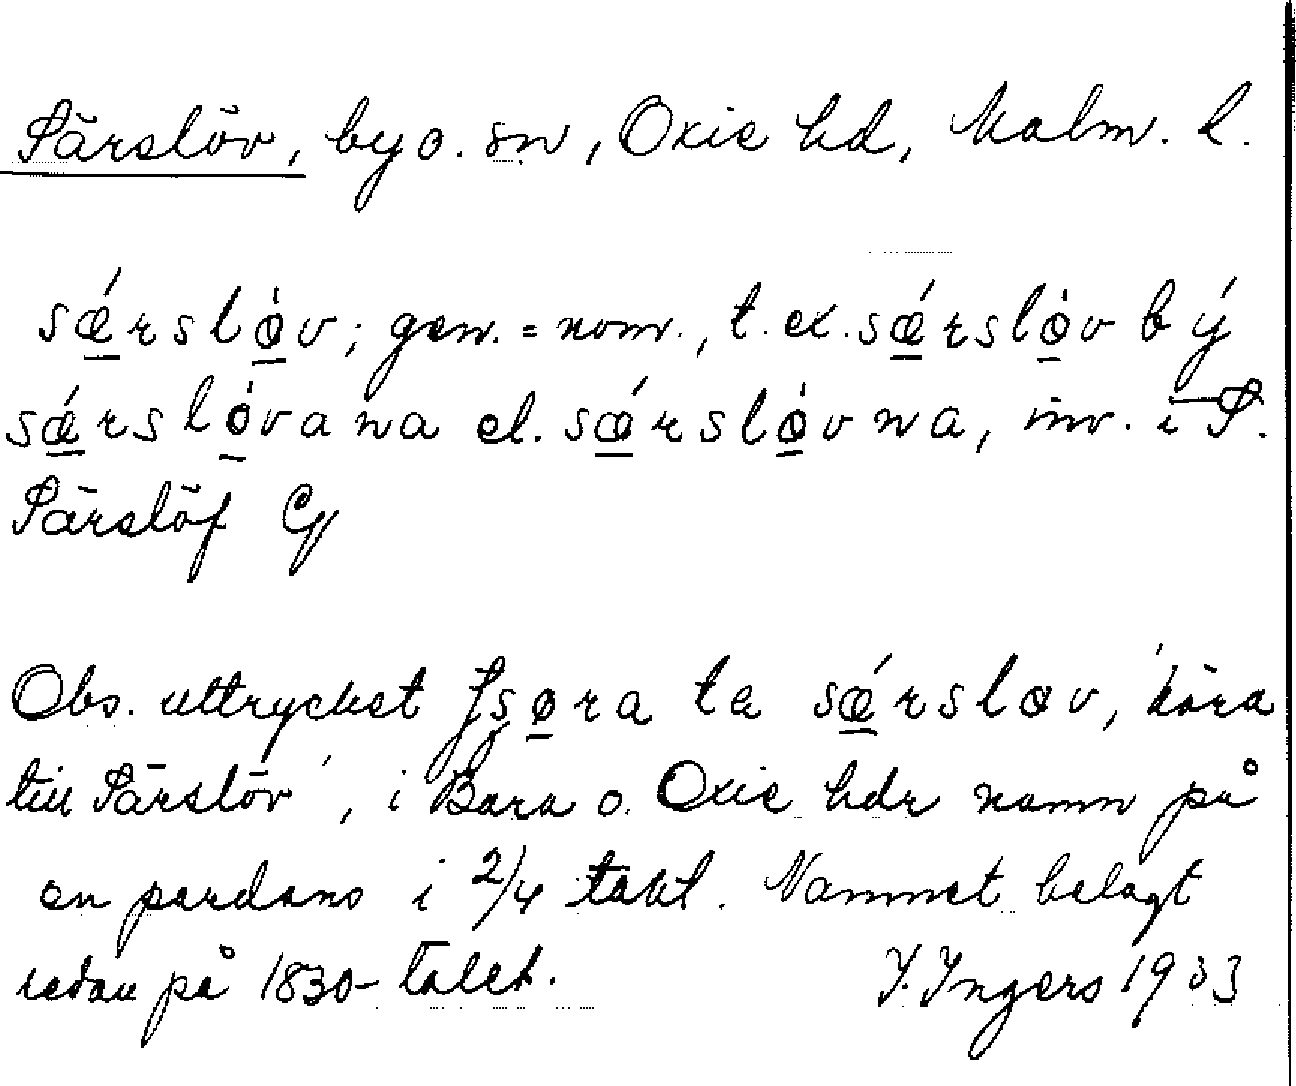 Särslöv, by o. sn, Oxie hd, Malm. l.
sǽrslø̇v; gen. = nom., t. ex. sǽrslø̇v bý
sǽrslø̇vana el. sǽrslø̇vna, inv. i S.
Särslöf Cy
Obs. uttrycket ʃsøra te sǽrsləv, 'köra
till Särslöv', i Bara o. Oxie hdr namn på
en pardans i 2/4 takt. Namnet belagt
redan på 1830-talet. I. Ingers 1933